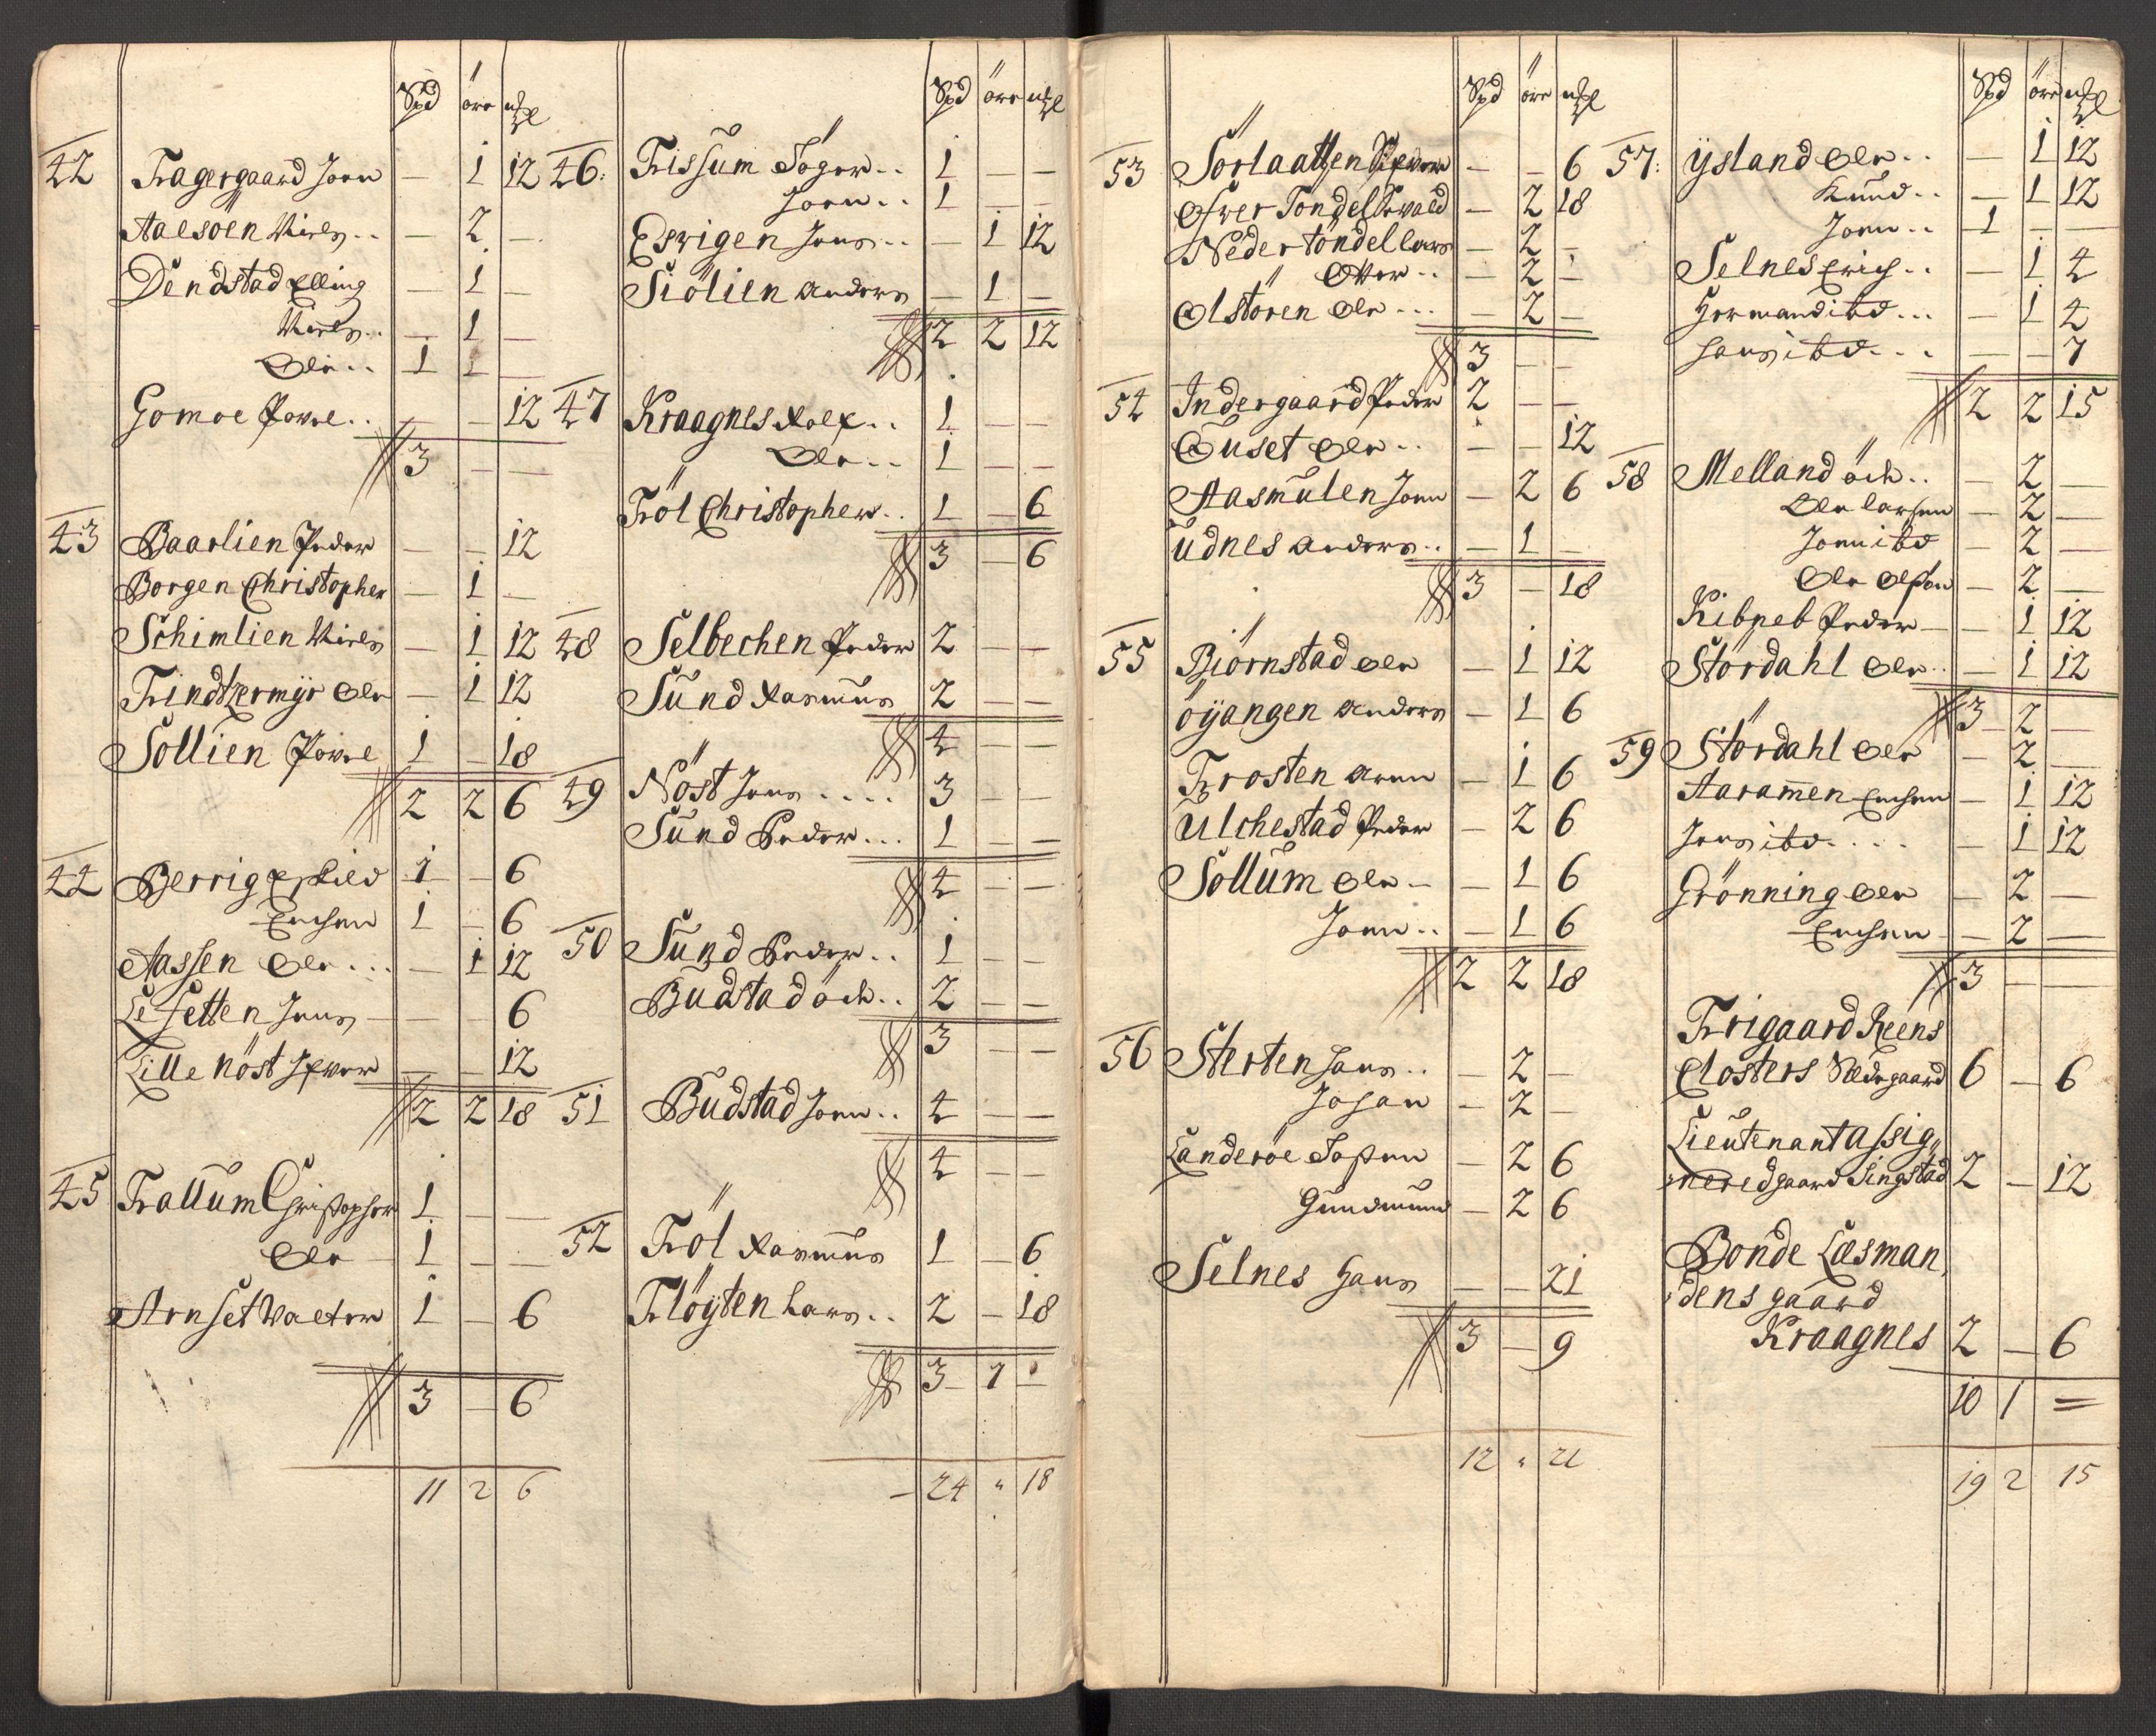 Spd öre mkl
42 Fragergaard Joen — 1 12
Aalsöen Niels .. — 2 —
Dendstad Elling — 1 —
Niels .. — 1 —
Ole .. 1 1 —
Gomoe Powel .. — — 12
3 — —
43 Baarlien Peder — — 12
Borgen Christopher — 1 —
Schimlien Niels — 1 12
Trindtzermÿr Ole — 1 12
Sollien Powel 1 — 18
2 2 6
44 Berrig 1 — 6
Erichsen 1 — 6
Aassen Ole ... — 1 12
Lesetten Jens — — 6
Lille Nöst Sifver — — 12
2 2 18
45 Frallum Christopher 1 — —
Ole 1 — —
Arnset Walter 1 — 6
3 — 6
11 2 6
Spd öre mkl
46: Frissum Söger .. 1 — —
Joen .. 1 — —
Eswigen Jens .. — 1 12
Siölien Anders — 1 —
2 2 12
47 Kraagnes Rolf .. 1 — —
Ole .. 1 — —
Fröl Christopher .. 1 — 6
3 — 6
48 Selbechen Peder 2 — —
Sund Rasmus 2 — —
4 — —
49 Nöst Jens .... 3 — —
Sund Peder ... 1 — —
4 — —
50 Sund Peder .. 1 — —
Budstad och .. 2 — —
3 — —
51 Budstad Joen .. 4 — —
4 — —
52 Fröl Rasmus 1 — 6
Flöÿten Lars .. 2 — 18
3 1 —
24 " 18
Spd öre mkl
53 Sörlaatten Sifver — — 6
Ofver Tondel Siwald — 2 18
Neder töndel Lars — 2 —
Otter .. — 2 —
Olstören Ole ... — 2 —
3 — —
54 Indergaard Peder 2 — —
Guset Ole .. — — 12
Aasmulen Joen — 2 6
Udnes Anders .. — 1 —
3 — 18
55 Biörnstad Ole — 1 12
öÿangen Anders — 1 6
Frosten Arne — 1 6
Ulchestad Peder — 2 6
Sollum Ole — 1 6
Joen .. — 1 6
2 2 18
56 Sterten Hans .. — 2 —
Johan — 2 —
Landeröe — 2 6
Gundmund — 2 6
Selnes Hans — — 21
3 — 9
12 " 21
Spd öre mkl
57: ÿsland Ole .. — 1 12
Knud .. — 1 12
Joen .. 1 — —
Selnes Erich .. — 1 4
Hermand ibd ... — 1 4
Hans ibd ... — — 7
2 2 15
58 Melland och .. — 2 —
Ole Larsen — 2 —
Joen ibd — 2 —
Ole Olsen — 2 —
Kibneb Peder — 1 12
Stördahl Ole .. — 1 12
3 2 —
59 Stördahl Ole — 2 —
Aaramen Erichen — 1 12
Jens ibd .... — 1 12
Grönning Ole — 2 —
Erichen — 2 —
3 — —
Frigaard Reens
Closters Sædegaard 6 — 6
Lieutenant Assig
neredgaard Singstad 2 — 12
Bonde Læsman
dens gaard
Kraagnes 2 — 6
10 1 =
19 2 15